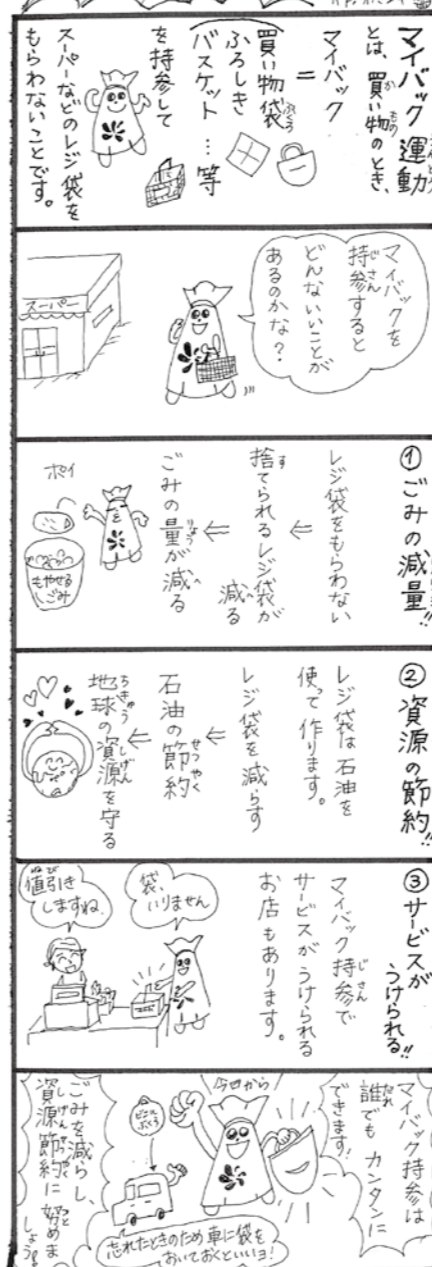 マイバック運動
とは、買い物のとき、
マイバック
＝
買い物袋
ふろしき
バスケット…等
を持参して
スーパーなどのレジ袋を
もらわないことです。
マイバックを
持参すると
どんないいことが
あるのかな？
スーパー
①ごみの減量!!
レジ袋をもらわない
⇐
捨てられるレジ袋が
減る
⇐
ごみの量が減る
ポイ
もやせる
ごみ
②資源の節約!!
レジ袋は石油を
使って作ります。
レジ袋を減らす
⇐
石油の節約
⇐
地球の資源を守る
③サービスが
うけられる!!
マイバック持参で
サービスがうけられる
お店もあります。
袋、
いりません
値引き
しますね。
マイバック持参は
誰でもカンタンに
できます!
今日から
ビニール
ぶくろ
忘れたときのため車に袋を
おいておくといいヨ!
ごみを減らし、
資源節約に努めま
しょう!!